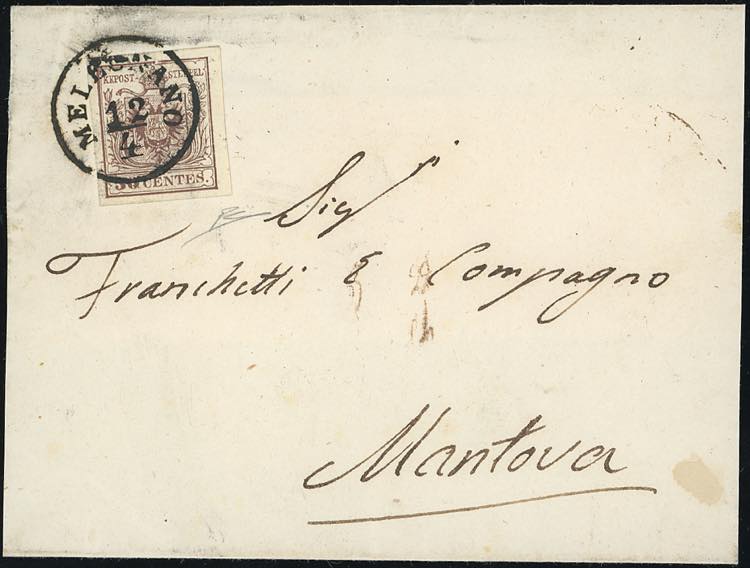 MELEGNANO
12/4
KKPOST-STEMPEL
30 CENTES.
Sigr
Franchetti & Compagno
Mantova